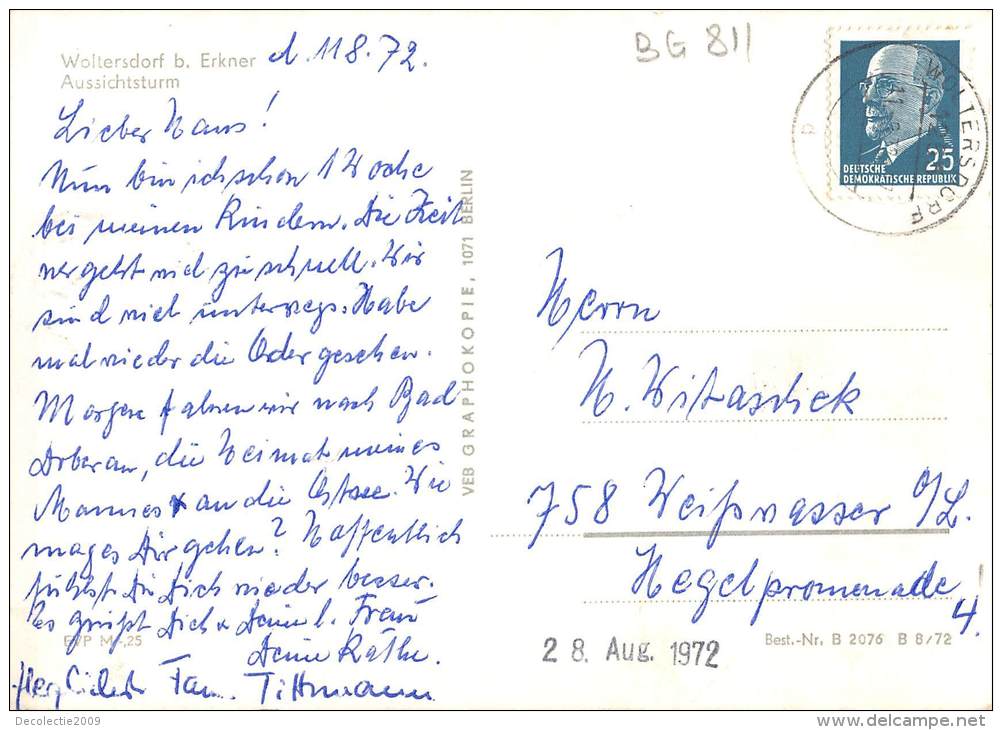 Woltersdorf b. Erkner
Aussichtsturm
d. 11 8. 72.
Lieber Hans!
Nun bin ich schon 1 Woche
bei meinen Kindern. Die Zeit
vergeht viel zu schnell. Wir
sind viel unterwegs. Habe
mal wieder die Oder gesehen.
Morgen fahren wir nach Bad
Doberan, die Heimat meines
Mannes an die Ostsee. Wie
mag es Dir gehen? Hoffentlich
fühlst Du Dich wieder besser.
Es grüßt Dich u Deine l. Frau
Deine Käthe.
Herzlichst Fam. Tittmann
EVP M -,25
VEB GRAPHOKOPIE, 1071 BERLIN
BG 811
25
DEUTSCHE
DEMOKRATISCHE REPUBLIK
WOLTERSDORF
Herrn
H. Witaschek
758 Weißwasser O/L.
Hegelpromenade
4.
28. Aug. 1972
Best.-Nr. B 2076 B 8/72
Decolectie2009
www.delcampe.net